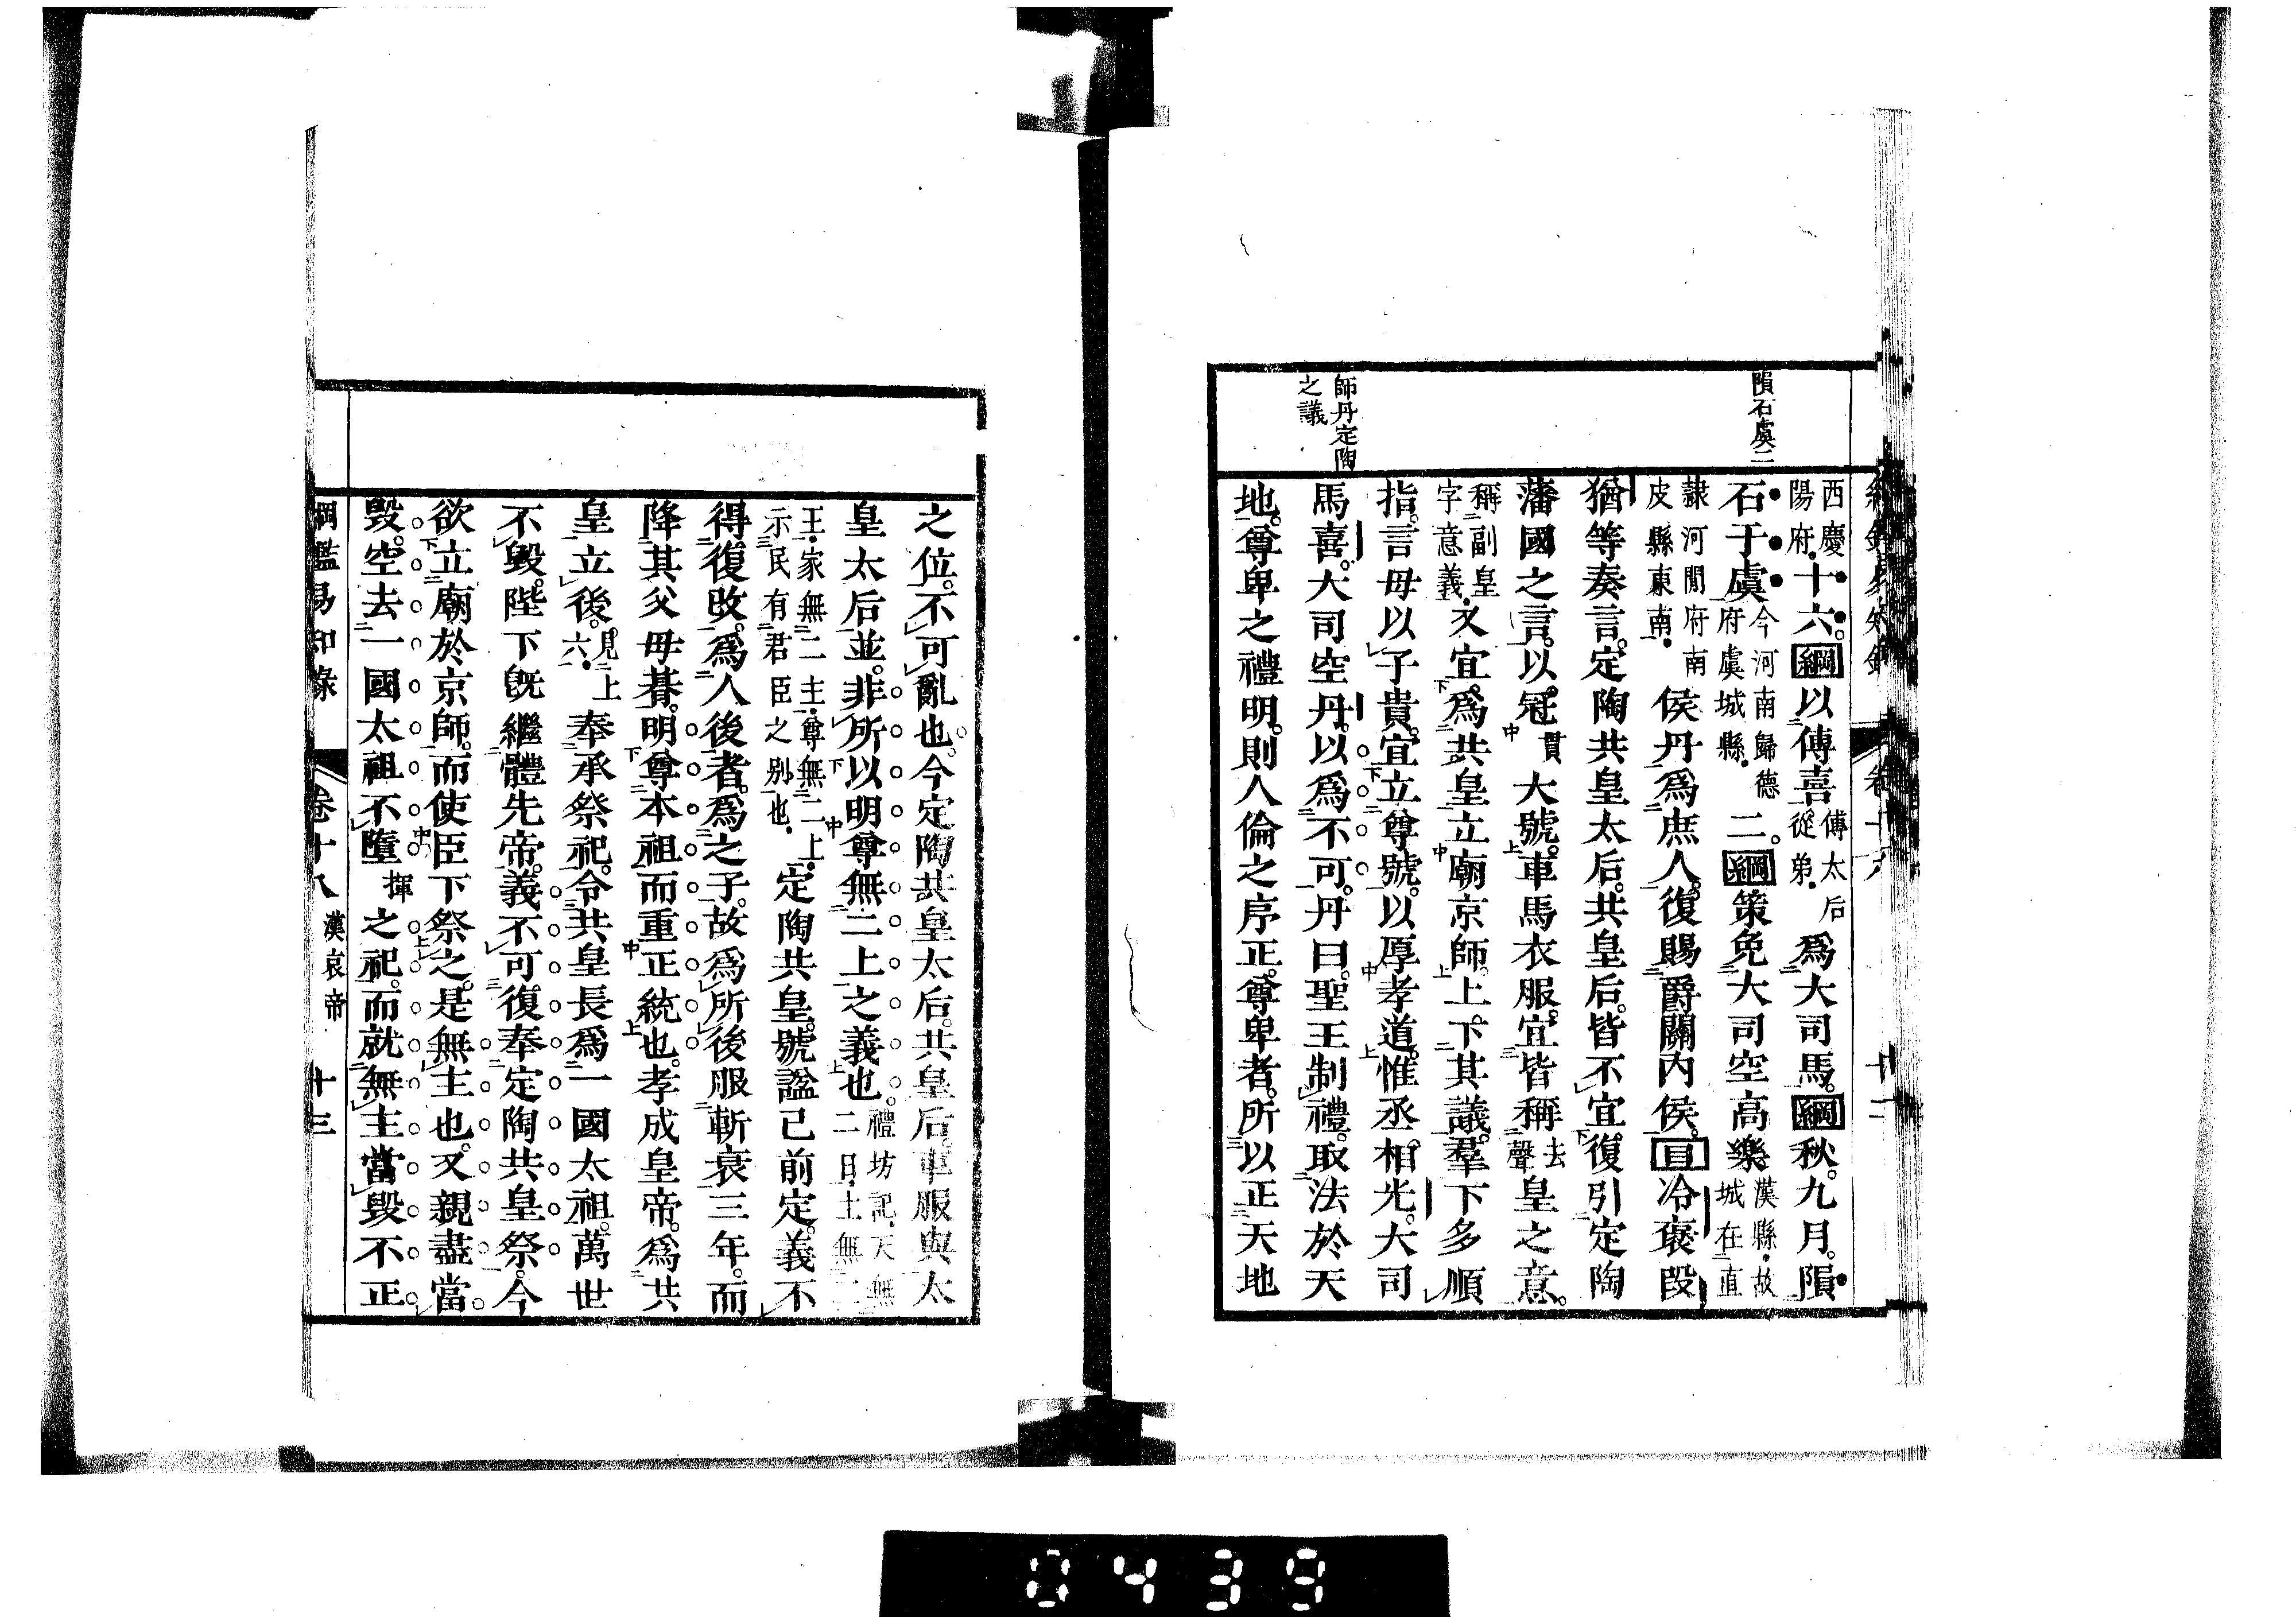 隕石虞二
師丹定陶
之議
西慶陽府十六。綱以傅喜傅太后從弟爲大司馬。綱秋。九月。隕
石于虞今河南歸德府虞城縣二。綱策免大司空高樂漢縣故城在直
隷河閒府南皮縣東南侯丹爲庶人。復賜爵關內侯。目冷褒段
猶等奏言。定陶共皇太后。共皇后。皆不宜復引定陶
藩國之言。以冠貫大號。車馬衣服。宜皆稱去聲皇之意。
稱副皇字意義又宜爲共皇立廟京師。上下其議。羣下多順
指。言母以子貴。宜立尊號。以厚孝道。惟丞相光。大司
馬喜。大司空丹。以爲不可。丹曰。聖王制禮。取法於天
地。尊卑之禮明。則人倫之序正。尊卑者。所以正天地
之位。不可亂也。今定陶共皇太后。共皇后。車服與太
皇太后並。非所以明尊無二上之義也。禮坊記天無二日土無二
王家無二主尊無二上示民有君臣之別也定陶共皇。號諡已前定。義不
得復改。爲人後者。爲之子。故爲所後服斬衰三年。而
降其父母朞。明尊本祖而重正統也。孝成皇帝。爲共
皇立後。見上六奉承祭祀。令共皇長爲一國太祖。萬世
不毀。陛下既繼體先帝。義不可復奉定陶共皇祭。今
欲立廟於京師。而使臣下祭之。是無主也。又親盡當
毀。空去一國太祖不墮揮之祀。而就無主當毀不正
綱鑑易知錄 卷十八 漢哀帝 十三
0439